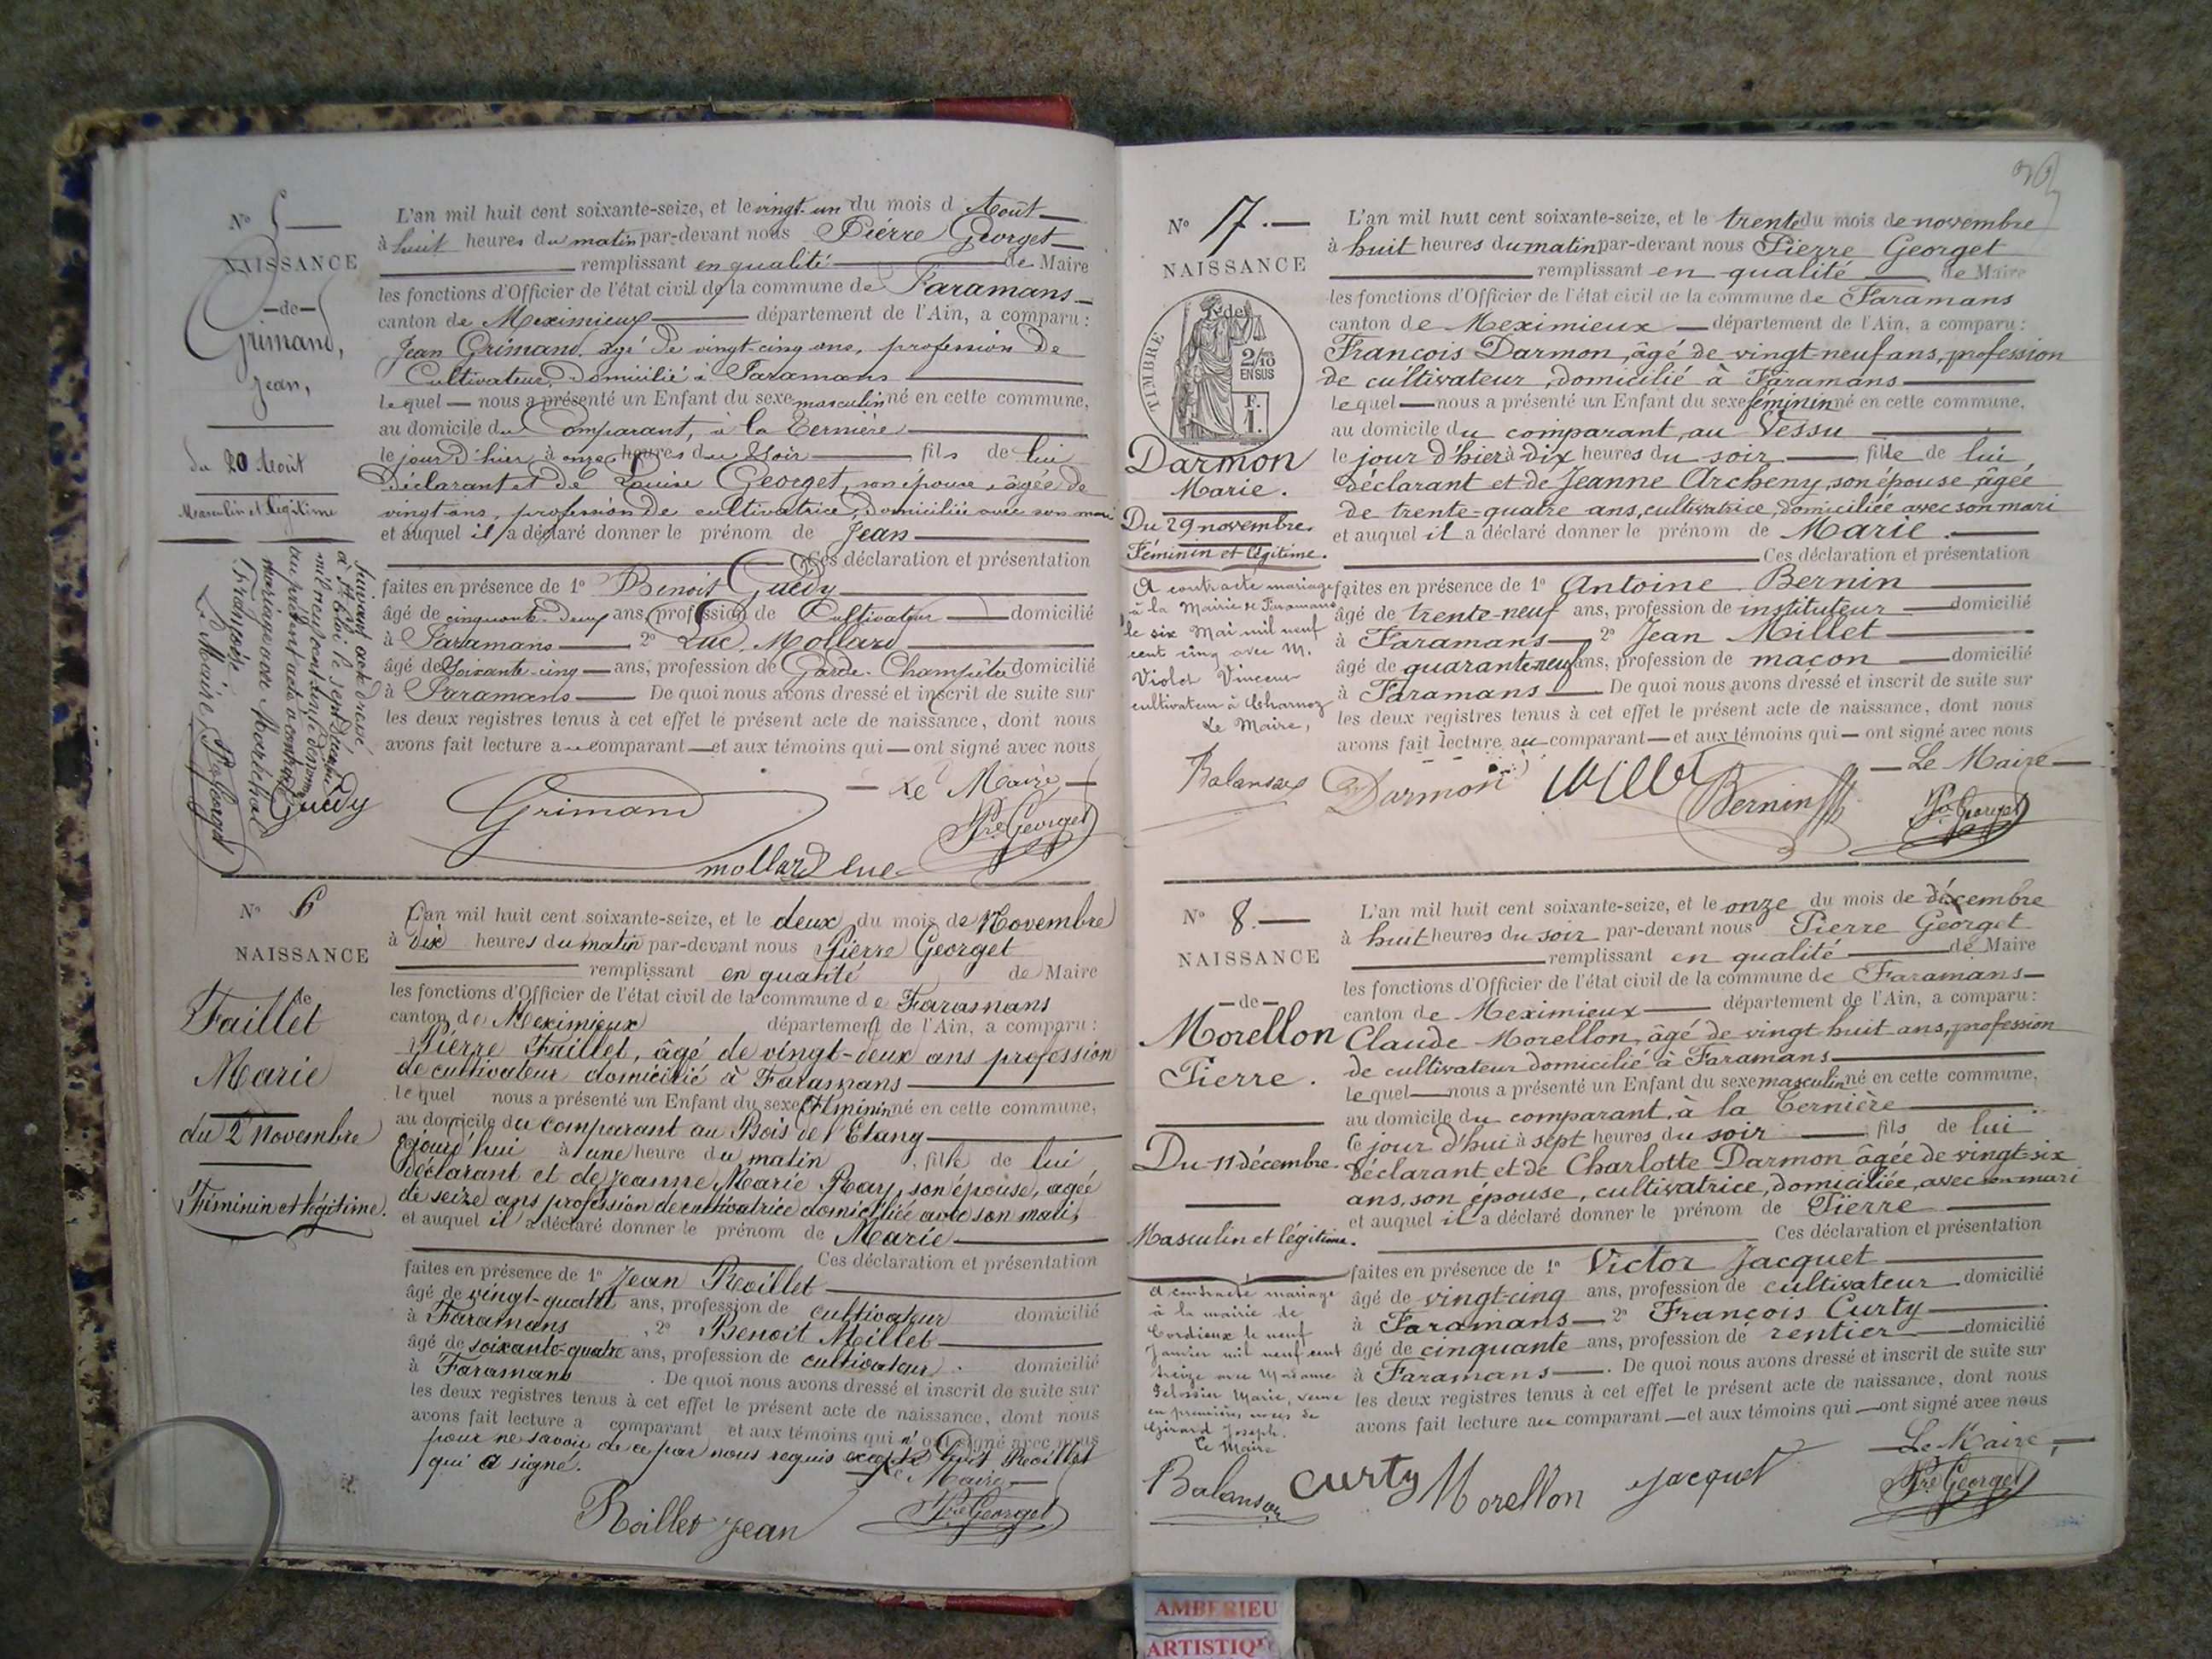 N° 5 —
NAISSANCE
— de —
Grimand,
Jean,
du 20 Août
Masculin et légitime
L'an mil huit cent soixante-seize, et le vingt-un du mois d'Août —
à huit heures du matin par-devant nous Pierre Georget —
remplissant en qualité — de Maire
les fonctions d'Officier de l'état civil de la commune de Faramans —
canton de Meximieux — département de l'Ain, a comparu :
Jean Grimand, âgé de vingt-cinq ans, profession de
Cultivateur, domicilié à Faramans —
lequel — nous a présenté un Enfant du sexe masculin né en cette commune,
au domicile du Comparant, à la Bernière —
le jour d'hier, à onze heures du soir — fils de lui
Déclarant et de Louise Georget, son épouse, âgée de
vingt ans, profession de cultivatrice, domiciliée avec son mari
et auquel il a déclaré donner le prénom de Jean —
Ces déclaration et présentation
faites en présence de 1° Benoit Guédy —
âgé de cinquante-deux ans, profession de Cultivateur — domicilié
à Faramans — 2° Luc Mollard —
âgé de Soixante-cinq — ans, profession de Garde-Champêtre domicilié
à Faramans — De quoi nous avons dressé et inscrit de suite sur
les deux registres tenus à cet effet le présent acte de naissance, dont nous
avons fait lecture au comparant — et aux témoins qui — ont signé avec nous
— Le Maire —
Suivant acte dressé
à
au présent acte a contracté
mariage avec
Françoise
Le Maire,
Guédy
Grimand
Pre Georget
mollard luc
N° 6
NAISSANCE
de
Faillet
Marie
du 2 Novembre
Féminin et légitime.
L'an mil huit cent soixante-seize, et le deux du mois de Novembre
à dix heures du matin par-devant nous Pierre Georget
remplissant en qualité de Maire
les fonctions d'Officier de l'état civil de la commune de Faramans
canton de Meximieux département de l'Ain, a comparu :
Pierre Faillet, âgé de vingt-deux ans profession
de cultivateur domicilié à Faramans —
lequel nous a présenté un Enfant du sexe féminin né en cette commune,
au domicile du comparant au Bois de l'Etang —
cejourd'hui à une heure du matin, fille de lui
déclarant et de Jeanne Marie Ray, son épouse, agée
de seize ans profession de cultivatrice domiciliée avec son mari,
et auquel il a déclaré donner le prénom de Marie —
Ces déclaration et présentation
faites en présence de 1° Jean Roillet —
âgé de vingt-quatre ans, profession de cultivateur domicilié
à Faramans, 2° Benoit Meillet —
âgé de soixante-quatre ans, profession de cultivateur. domicilié
à Faramans. De quoi nous avons dressé et inscrit de suite sur
les deux registres tenus à cet effet le présent acte de naissance, dont nous
avons fait lecture a comparant et aux témoins qui n'ont signé avec nous
pour ne savoir de ce par nous requis excepté Roillet
qui a signé. Le Maire —
Roillet Jean
Pre Georget
N° 7. —
NAISSANCE
de
TIMBRE
2/10
EN SUS
F.
1.
Darmon
Marie.
Du 29 novembre.
Féminin et légitime.
A contracté mariage
à la Mairie de Faramans
le six Mai mil neuf
cent cinq avec M.
Violet Vincent
cultivateur à Charnoz
Le Maire,
Balansay
L'an mil huit cent soixante-seize, et le trente du mois de novembre
à huit heures du matin par-devant nous Pierre Georget
remplissant en qualité — de Maire
les fonctions d'Officier de l'état civil de la commune de Faramans
canton de Meximieux — département de l'Ain, a comparu :
François Darmon, âgé de vingt-neuf ans, profession
de cultivateur, domicilié à Faramans —
lequel — nous a présenté un Enfant du sexe féminin né en cette commune,
au domicile du comparant, au Vessu —
le jour d'hier à dix heures du soir — fille de lui
déclarant et de Jeanne Archeny, son épouse, âgée
de trente-quatre ans, cultivatrice, domiciliée avec son mari
et auquel il a déclaré donner le prénom de Marie. —
Ces déclaration et présentation
faites en présence de 1° Antoine Bernin —
âgé de trente-neuf ans, profession de instituteur — domicilié
à Faramans — 2° Jean Millet —
âgé de quarante-neuf ans, profession de maçon — domicilié
à Faramans — De quoi nous avons dressé et inscrit de suite sur
les deux registres tenus à cet effet le présent acte de naissance, dont nous
avons fait lecture au comparant — et aux témoins qui — ont signé avec nous
— Le Maire —
Darmon Millet Bernin Pre Georget
N° 8. —
NAISSANCE
— de —
Morellon
Pierre.
Du 11 décembre.
Masculin et légitime.
A contracté mariage
à la mairie de
Cordieux le neuf
Janvier mil neuf cent
treize avec Madame
Marie, veuve
en premières noces de
Girard Joseph.
Le Maire
Balansay
L'an mil huit cent soixante-seize, et le onze du mois de décembre
à huit heures du soir par-devant nous Pierre Georget
remplissant en qualité — de Maire
les fonctions d'Officier de l'état civil de la commune de Faramans —
canton de Meximieux — département de l'Ain, a comparu :
Claude Morellon, âgé de vingt huit ans, profession
de cultivateur domicilié à Faramans —
lequel — nous a présenté un Enfant du sexe masculin né en cette commune,
au domicile du comparant, à la Bernière —
ce jour d'hui à sept heures du soir — fils de lui
déclarant et de Charlotte Darmon âgée de vingt-six
ans, son épouse, cultivatrice, domiciliée, avec son mari
et auquel il a déclaré donner le prénom de Pierre —
Ces déclaration et présentation
faites en présence de 1° Victor Jacquet —
âgé de vingt-cinq ans, profession de cultivateur domicilié
à Faramans — 2° François Curty —
âgé de cinquante ans, profession de rentier — domicilié
à Faramans —. De quoi nous avons dressé et inscrit de suite sur
les deux registres tenus à cet effet le présent acte de naissance, dont nous
avons fait lecture au comparant — et aux témoins qui — ont signé avec nous
— Le Maire, —
Curty Morellon Jacquet Pre Georget
AMBERIEU
ARTISTIQUE